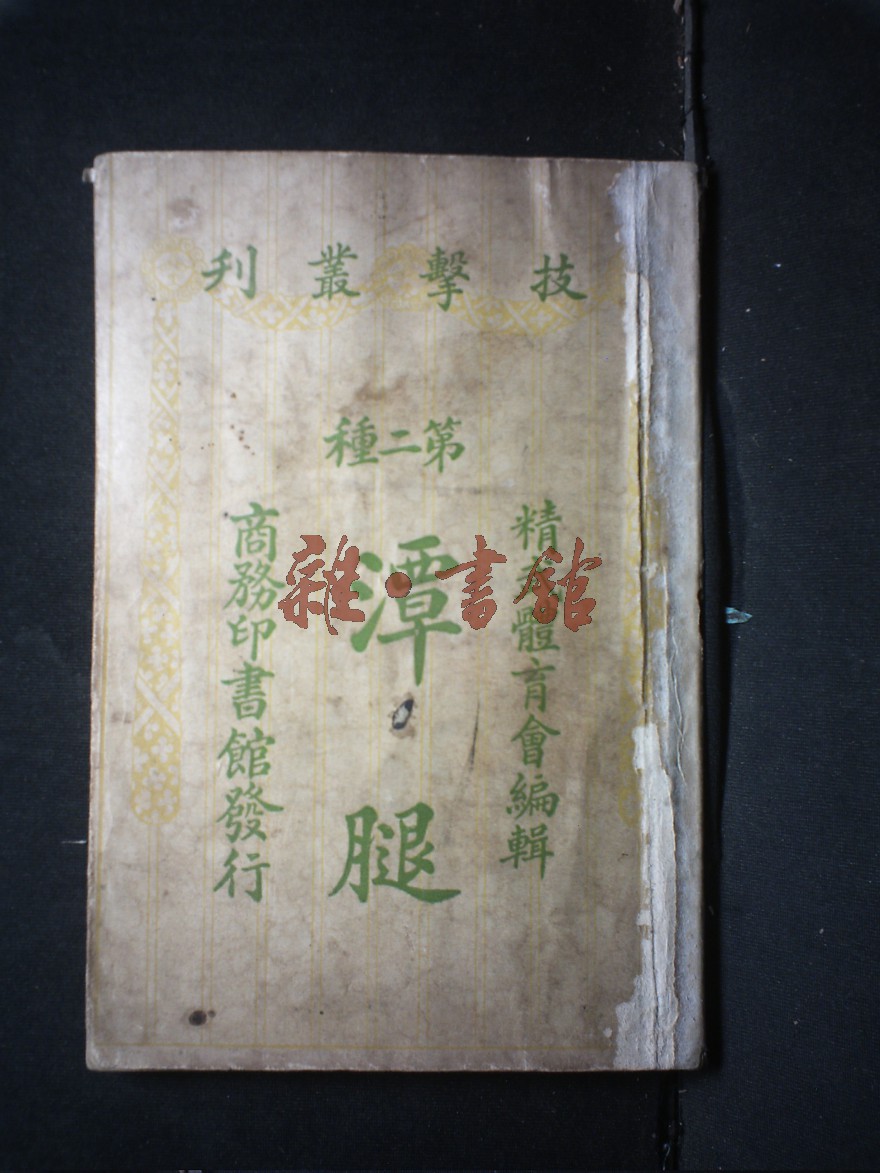 技擊叢刋
第二種
精武體育會編輯
潭腿
商務印書館發行
雜·書館